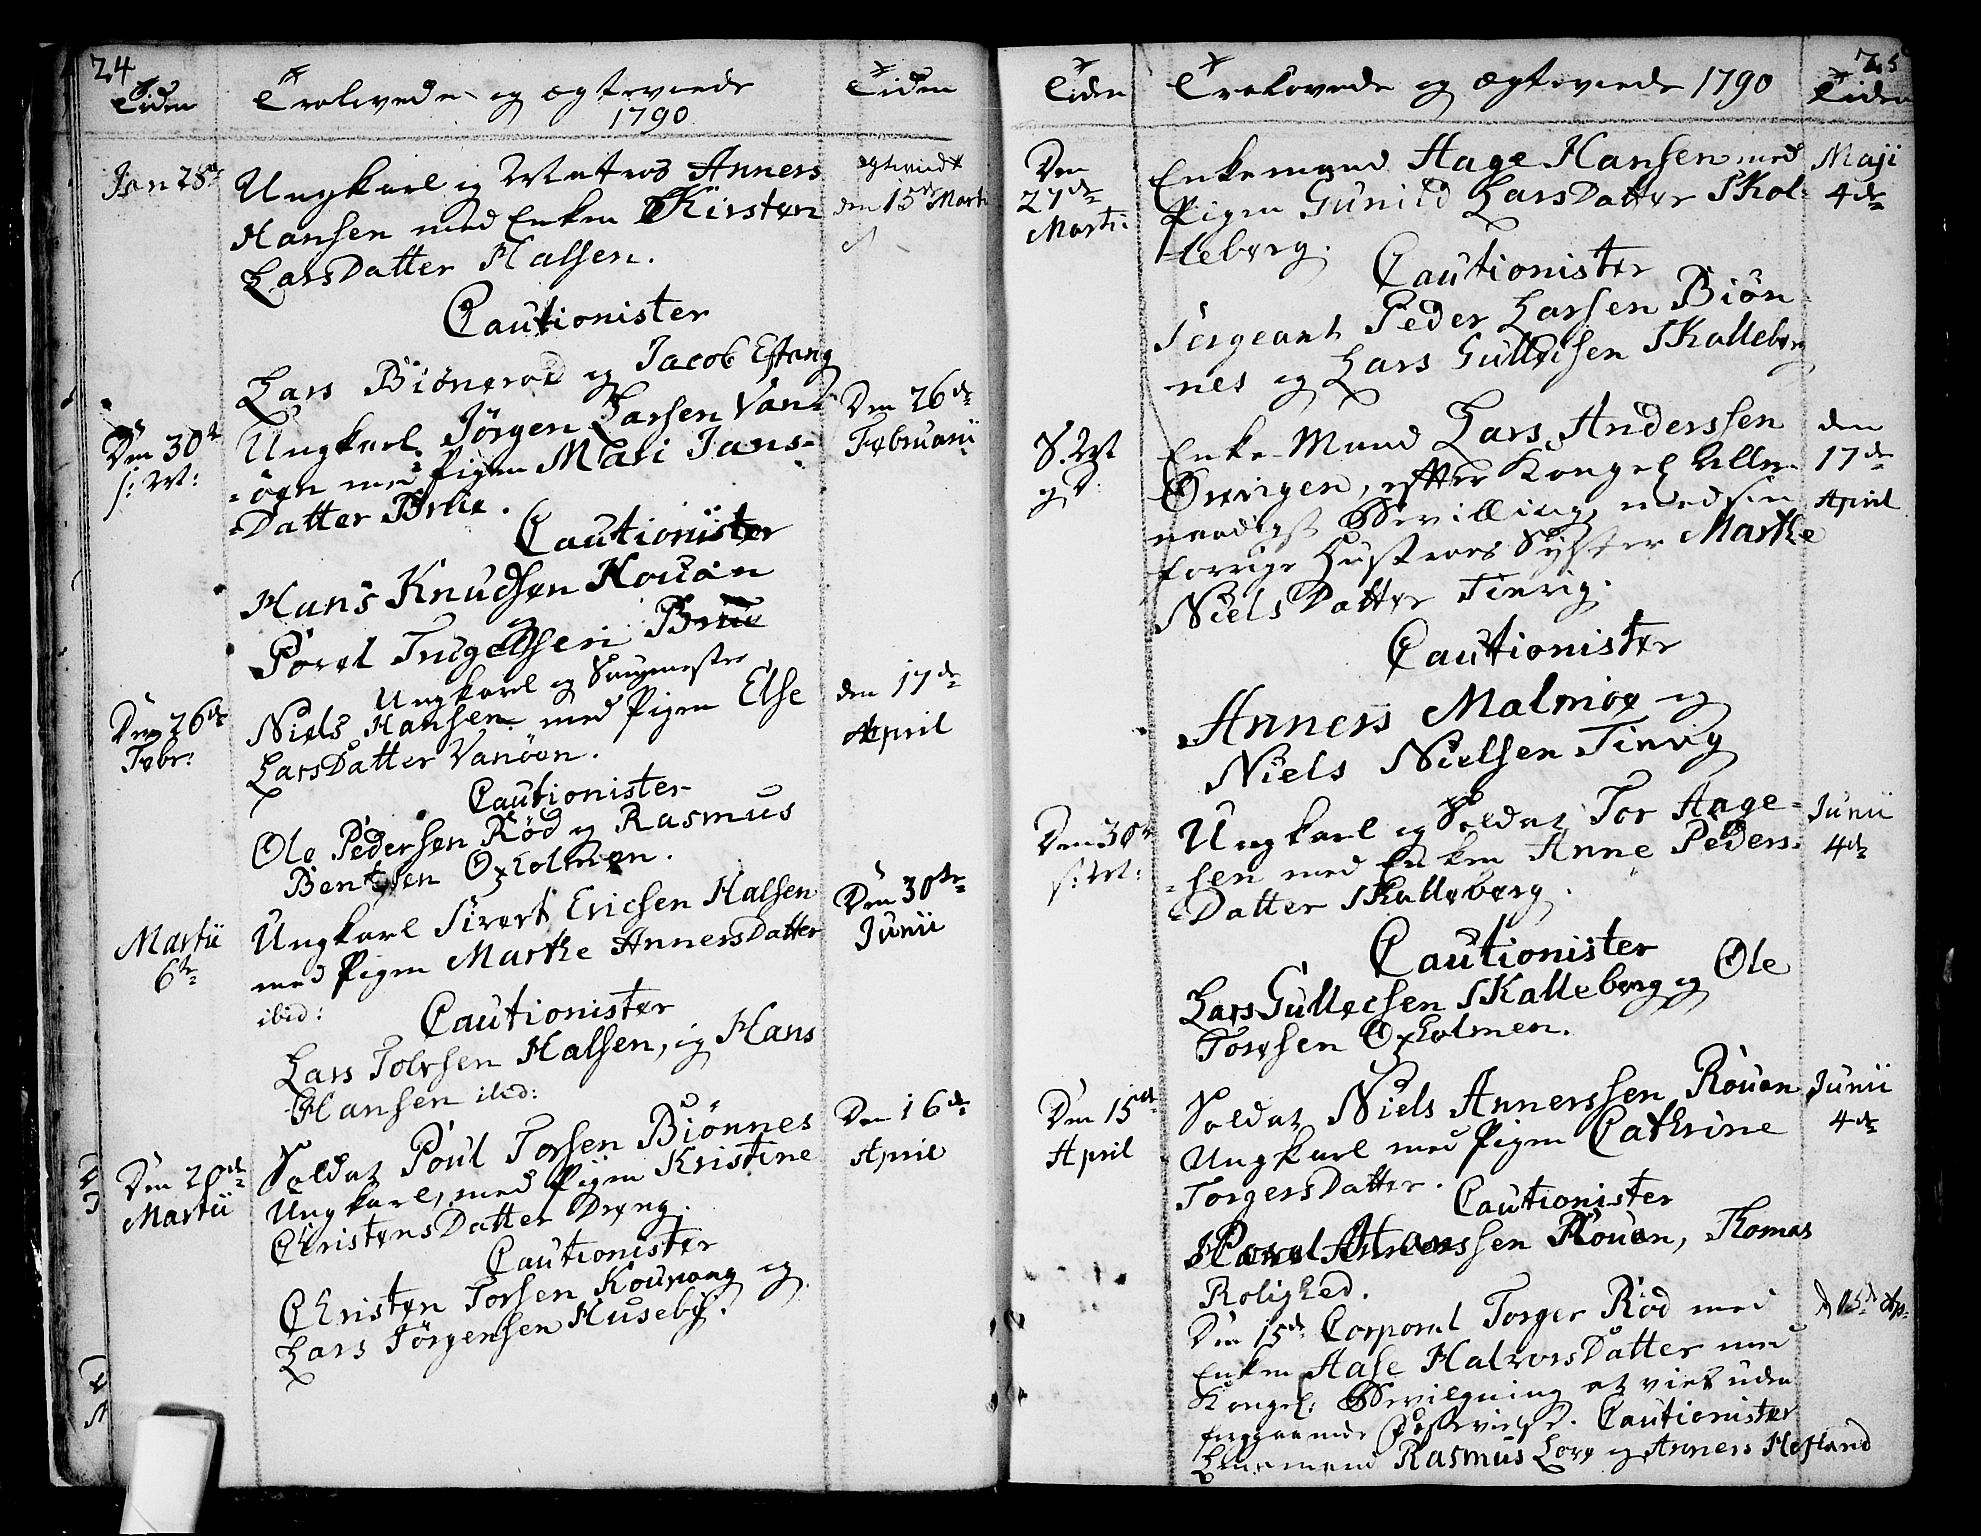 24
Tiden
Trolovede og ægteviede
1790
Tiden
Jan 28de
Ungkarl og Matros Anners
Hansen med Enken Kirsten
LarsDatter Halsen.
ægteviede
den 15de Martii
Cautionister
Lars Biönerød og Jacob Eftang
Den 30te
s: M:
Ungkarl Jörgen Larsen Van-
öen med Pigen Mari Jans-
Datter Brue.
Den 26de
Februarii
Cautionister
Hans Knudsen Houan
og
Povel Ingelsen Brue
Den 26de
Febr:
Ungkarl og
Niels Hansen med Pigen Else
LarsDatter Vanöen.
den 17de
April
Cautionister
Ole Pedersen Röd og Rasmus
Bentsen Oxholmen.
Martii
6te
Ungkarl Sivert Ericsen Halsen
med Pigen Marthe AnnersDatter
ibid:
Den 30te
Junii
Cautionister
Lars Tolvsen Halsen, og Hans
Hansen ibid:
Den 20de
Martii
Soldat Poul Torsen Biönnes
Ungkarl, med Pigen Kristine
ChristensDatter Dreng.
Den 16de
April
Cautionister
Christen Torsen og
Lars Jörgensen Huseby.
25
Tiden
Trolovede og ægteviede 1790
Tiden
Den
27de
Martii
Enkemand Hage Hansen med
Pigen Gunild LarsDatter Skal-
leberg.
Maji
4de
Cautionister
Sergeant Peder Larsen Biön
nes og Lars Gullecsen Skalleberg
S. M
og D.
Enke-Mand Lars Anderssen
efter Kongel Aller
naadigst Bevilling, med sin
forrige Hustroes Syster Marthe
NielsDatter Tinvig.
den
17de
April
Cautionister
Anners Malmöe og
Niels Nielsen Tinvig
Den 30te
s: M:
Ungkarl og Soldat Tor Aage-
sen med Enken Anne Peders-
Datter Skalleberg.
Junii
4de
Cautionister
Lars Gullecsen Skalleberg og Ole
Toresen Oxholmen.
Den 15de
April
Soldat Niels Annerssen Rouan
Ungkarl med Pigen Cathrine
TorgersDatter.
Junii
4de
Cautionister
Annerssen Rouan, Thomas
Rolighed.
Den 15de Corporal Torger Röd med
Enken Aase HalvorsDatter med
Kongel. Bevilgning at vies uden
foregaaende
Cautionister
Lensmand Rasmus Love og Anners Hofland
d 15de Ap.